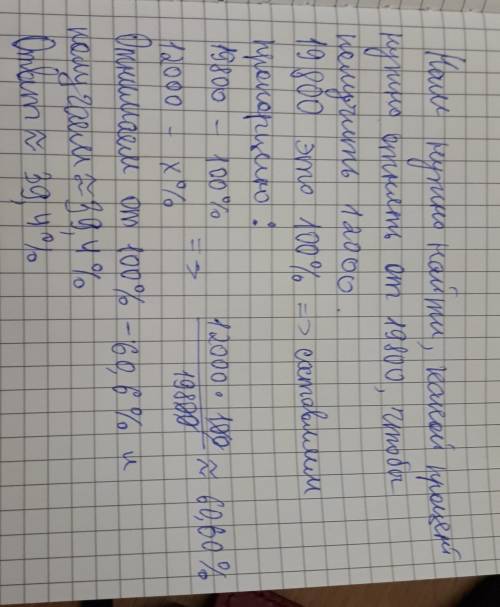 Нам нужно найти, какой процент
нужно отнять от 19800, чтобы
получить 12000.
19800 это 100% => составляем
пропорцию:
19800 - 100%
12000 - x%
=> 12000 · 100 / 19800 ≈ 60,60%
Отнимаем от 100% - 60,6% и
получаем ≈ 39,4%
Ответ ≈ 39,4%